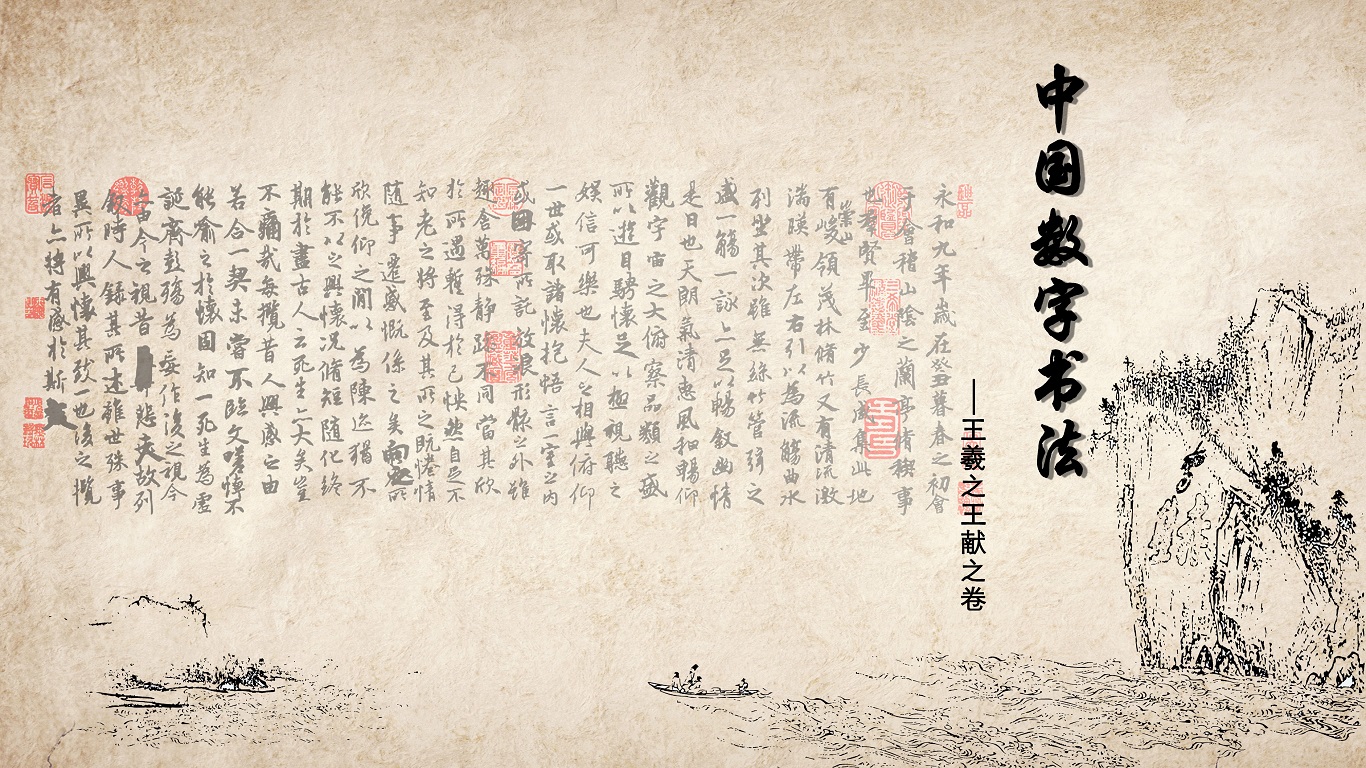 中国数字书法
—王羲之王献之卷
永和九年歲在癸丑暮春之初會
于會稽山陰之蘭亭脩稧事
也羣賢畢至少長咸集此地
有崇山峻領茂林脩竹又有清流激
湍暎帶左右引以為流觴曲水
列坐其次雖無絲竹管弦之
盛一觴一詠亦足以暢敘幽情
是日也天朗氣清惠風和暢仰
觀宇宙之大俯察品類之盛
所以遊目騁懷足以極視聽之
娛信可樂也夫人之相與俯仰
一世或取諸懷抱悟言一室之內
或因寄所託放浪形骸之外雖
趣舍萬殊静躁不同當其欣
於所遇蹔得於己怏然自足不
知老之將至及其所之既惓情
隨事遷感慨係之矣向之所
欣俛仰之間以為陳迹猶不
能不以之興懷況脩短隨化終
期於盡古人云死生亦大矣豈
不痛哉每攬昔人興感之由
若合一契未嘗不臨文嗟悼不
能喻之於懷固知一死生為虛
誕齊彭殤為妄作後之視今
亦由今之視昔悲夫故列
敘時人錄其所述雖世殊事
異所以興懷其致一也後之攬
者亦將有感於斯文